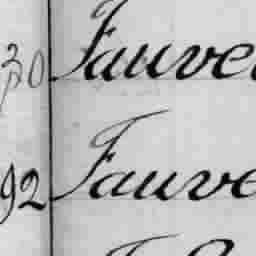 30 Fauve
92 Fauve